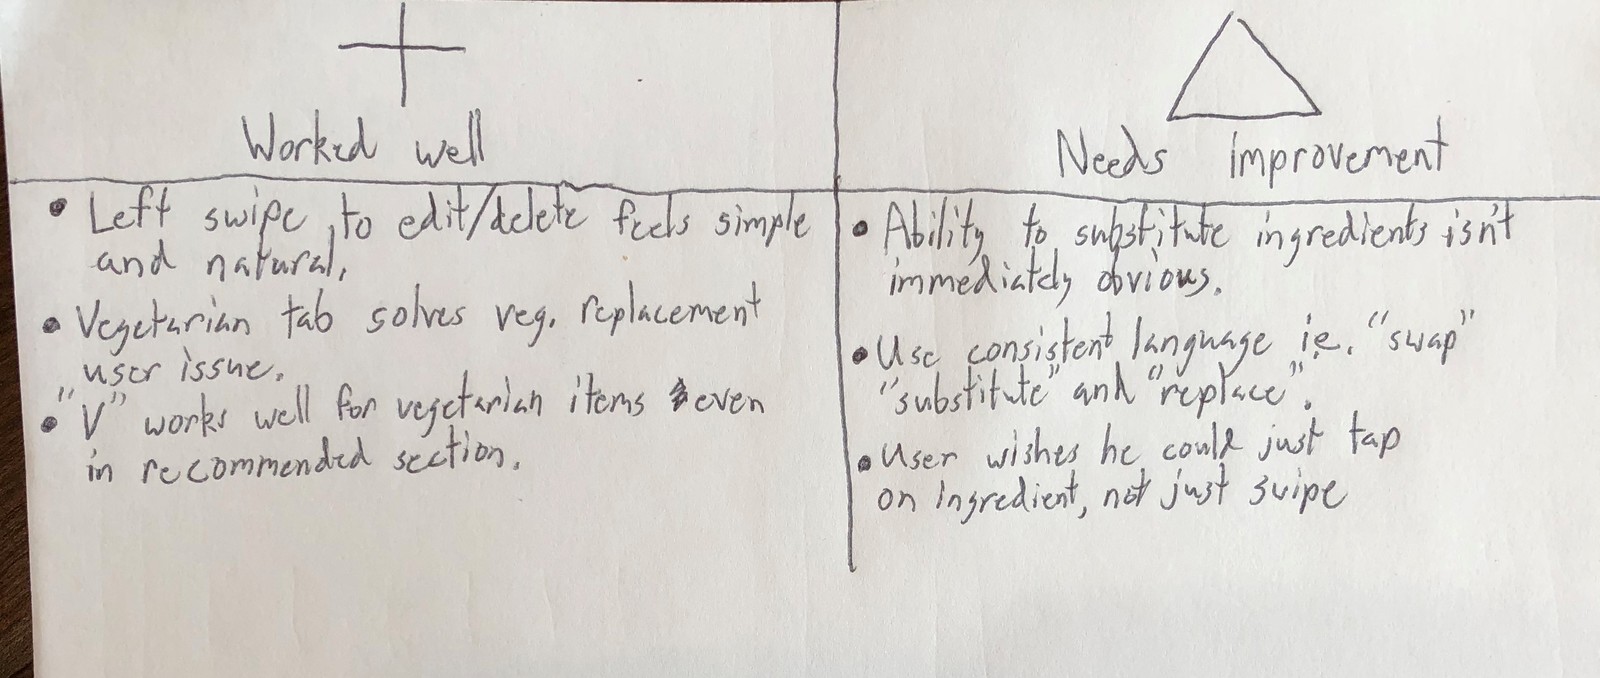 Worked well
• Left swipe to edit/delete feels simple
and natural.
• Vegetarian tab solves veg. replacement
user issue.
• "V" works well for vegetarian items even
in recommended section.
Needs improvement
• Ability to substitute ingredients isn't
immediately obvious.
• Use consistent language i.e. "swap"
"substitute" and "replace".
• User wishes he could just tap
on ingredient, not just swipe